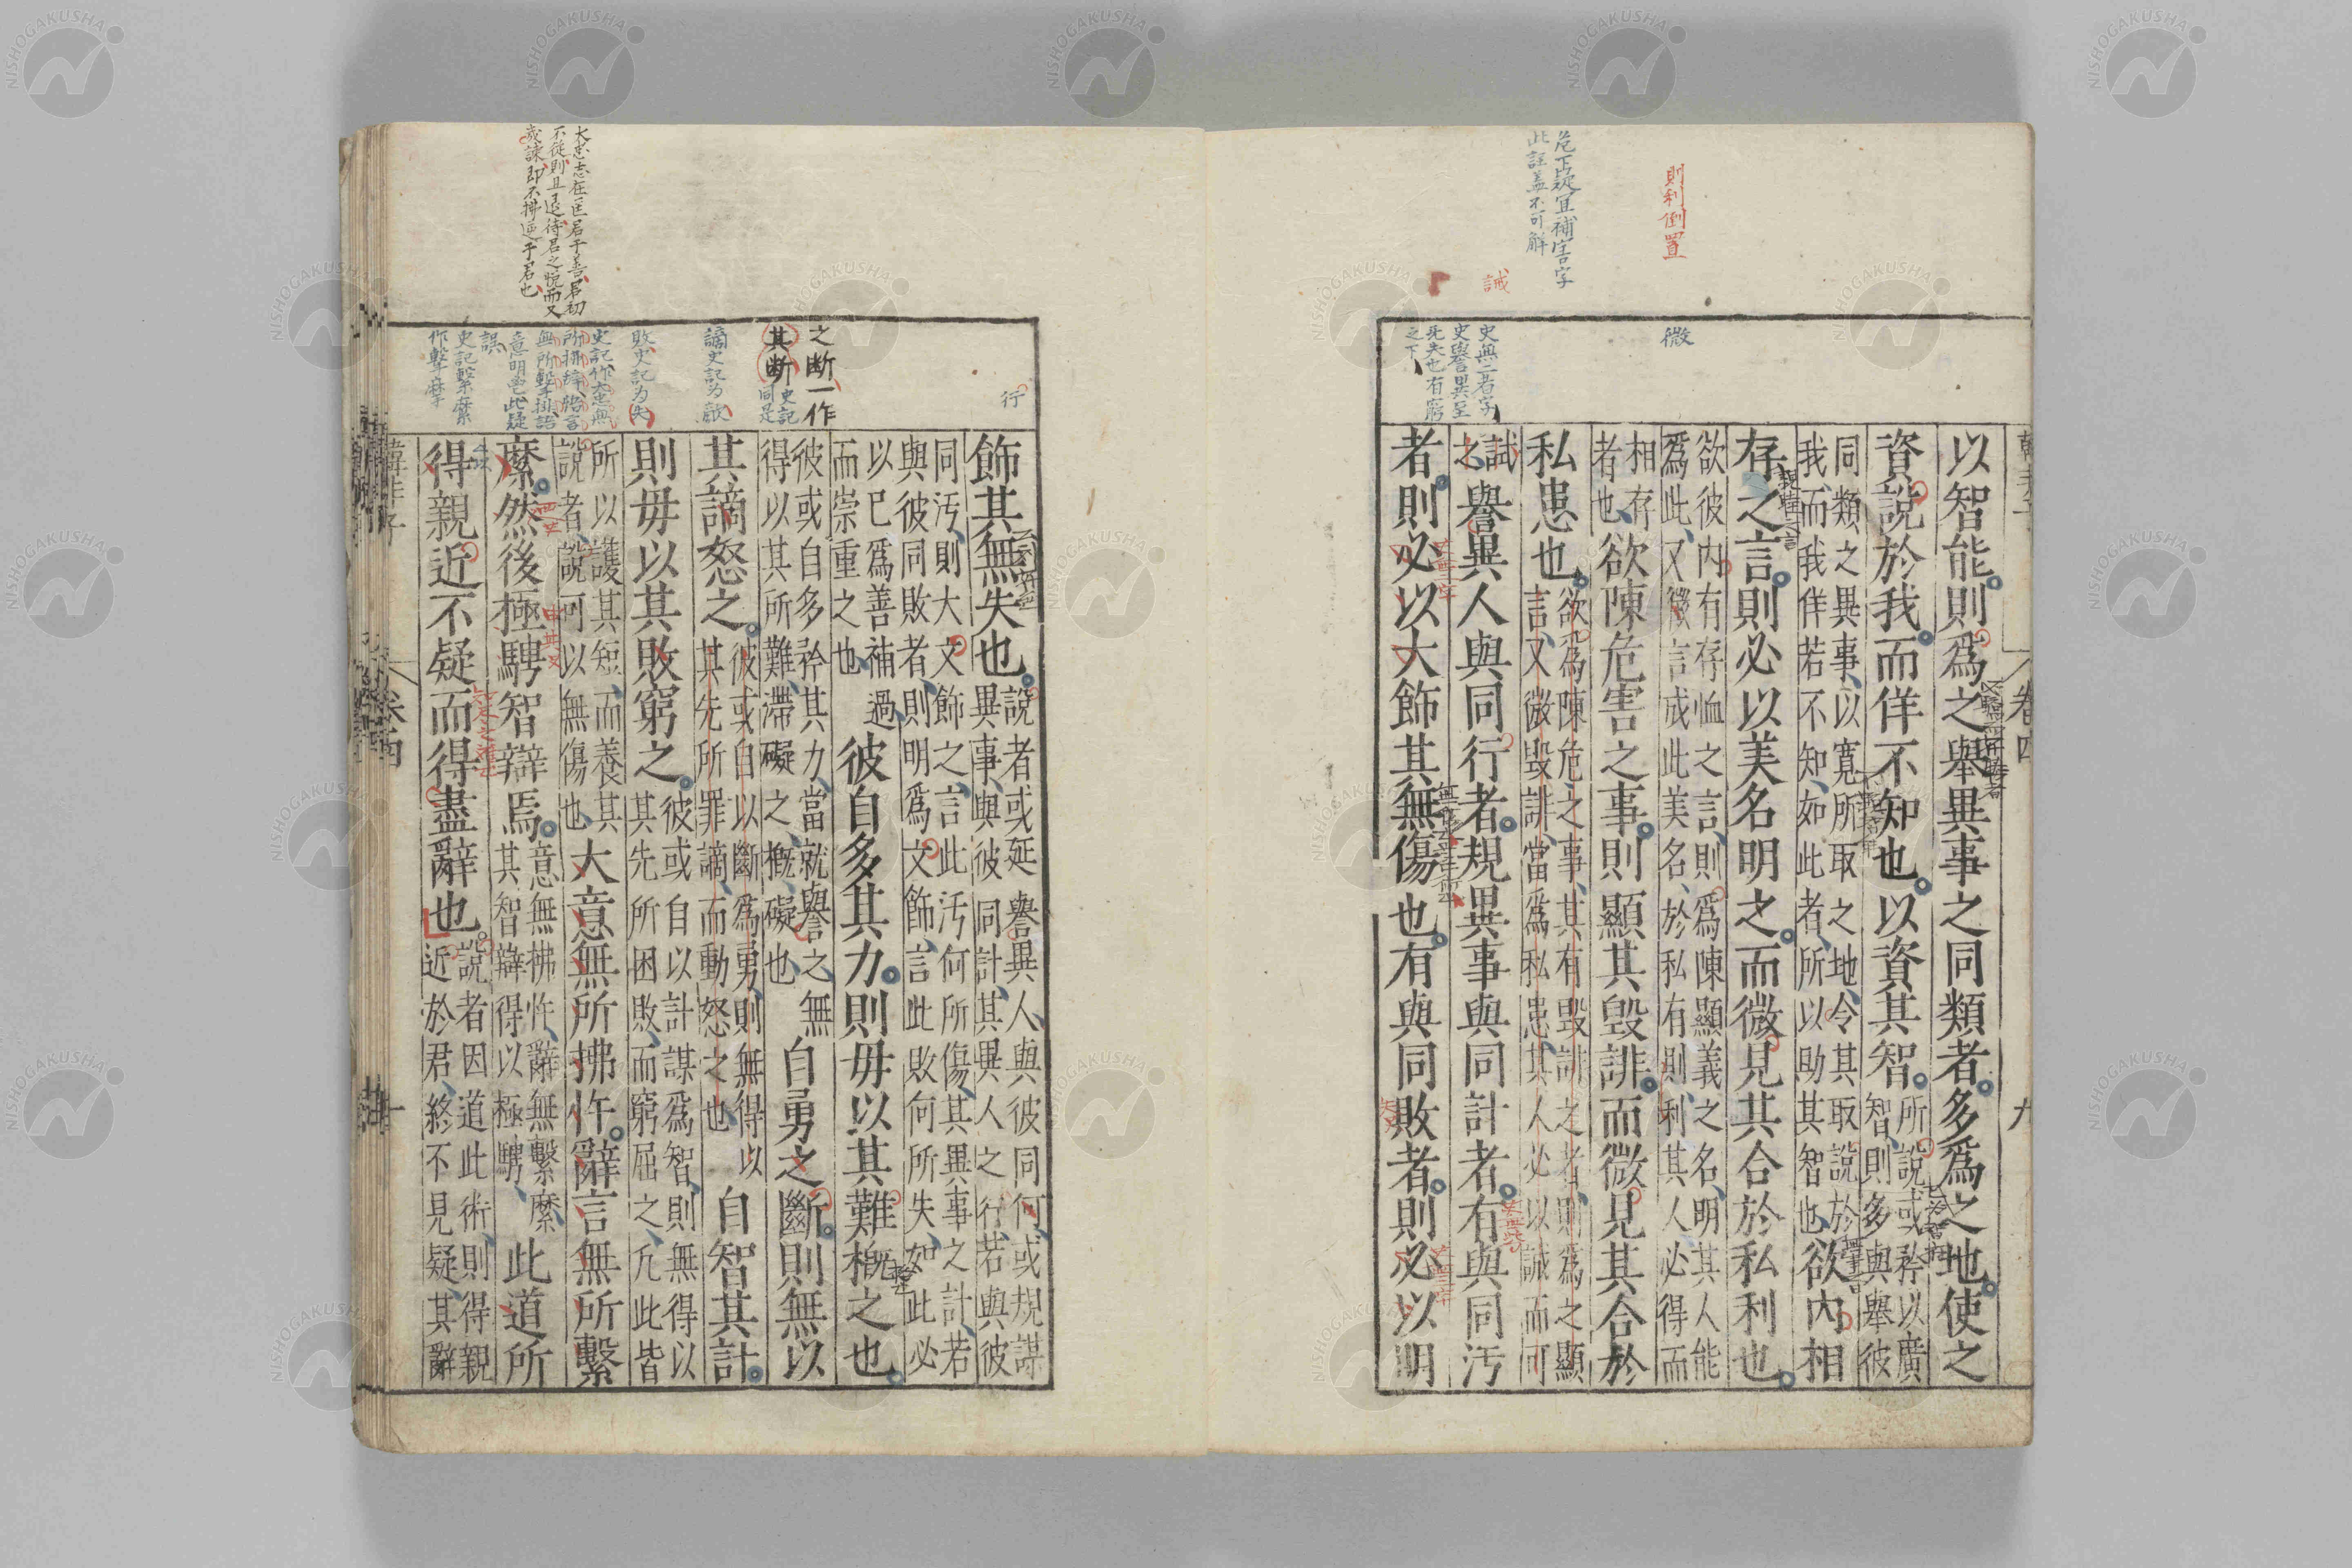 則利倒置
危下疑宜補害字
此註蓋不可解
誡
微
史無二者字
史譽異至
死失也有窮
之下
卷四
九
以智能則爲之舉異事之同類者多爲之地使之
資說於我而佯不知也以資其智
所說或矜以廣
智則多與舉彼
同類之異事以寬所取之地令其取說於
我而我佯若不知如此者所以助其智也
欲內相
存之言則必以美名明之而微見其合於私利也
欲彼內有存恤之言則爲陳顯義之名明其人能
爲此又微言成此美名於私有則利其人必得而
相存
者也
欲陳危害之事則顯其毀誹而微見其合於
私患也
欲爲陳危之事其有毀誹之者則爲之顯
言又微毀誹當爲私患其人必以誡而可
試
之
譽異人與同行者規異事與同計者有與同汚
者則必以大飾其無傷也有與同敗者則必以明
行
之断一作
其断
史記
同是
謫史記为敵
敗史記为失
史記作大忠無
所拂辞悟言
無所擊排語
意明邑此疑
誤
史記繫縻
作擊摩
大忠志在匡君于善君初
不従則且退待君之悅而又
或諫即不拂逆于君也
飾其無失也
說者或延譽異人與彼同何或規謀
異事與彼同計其異人之行若與彼
同汚則大文飾之言此汚何所傷其異事之計若
與彼同敗者則明爲文飾言此敗何所失如此必
以已爲善補過
而崇重之也
彼自多其力則毋以其難概之也
彼或自多矜其力當就譽之無
得以其所難滯礙之概礙也
自勇之斷則無以
其謫怒之
彼或自以斷爲勇則無得以
其先所罪謫而動怒之也
自智其計
則毋以其敗窮之
彼或自以計謀爲智則無得以
其先所困敗而窮屈之凡此皆
所以護其短而養其
說者說可以無傷也
大意無所拂忤辭言無所繫
縻然後極騁智辯焉
意無拂忤辭無繫縻
其智辯得以極騁
此道所
得親近不疑而得盡辭也
說者因道此術則得親
近於君終不見疑其辭
韓非子
卷四
NISHOGAKUSHA